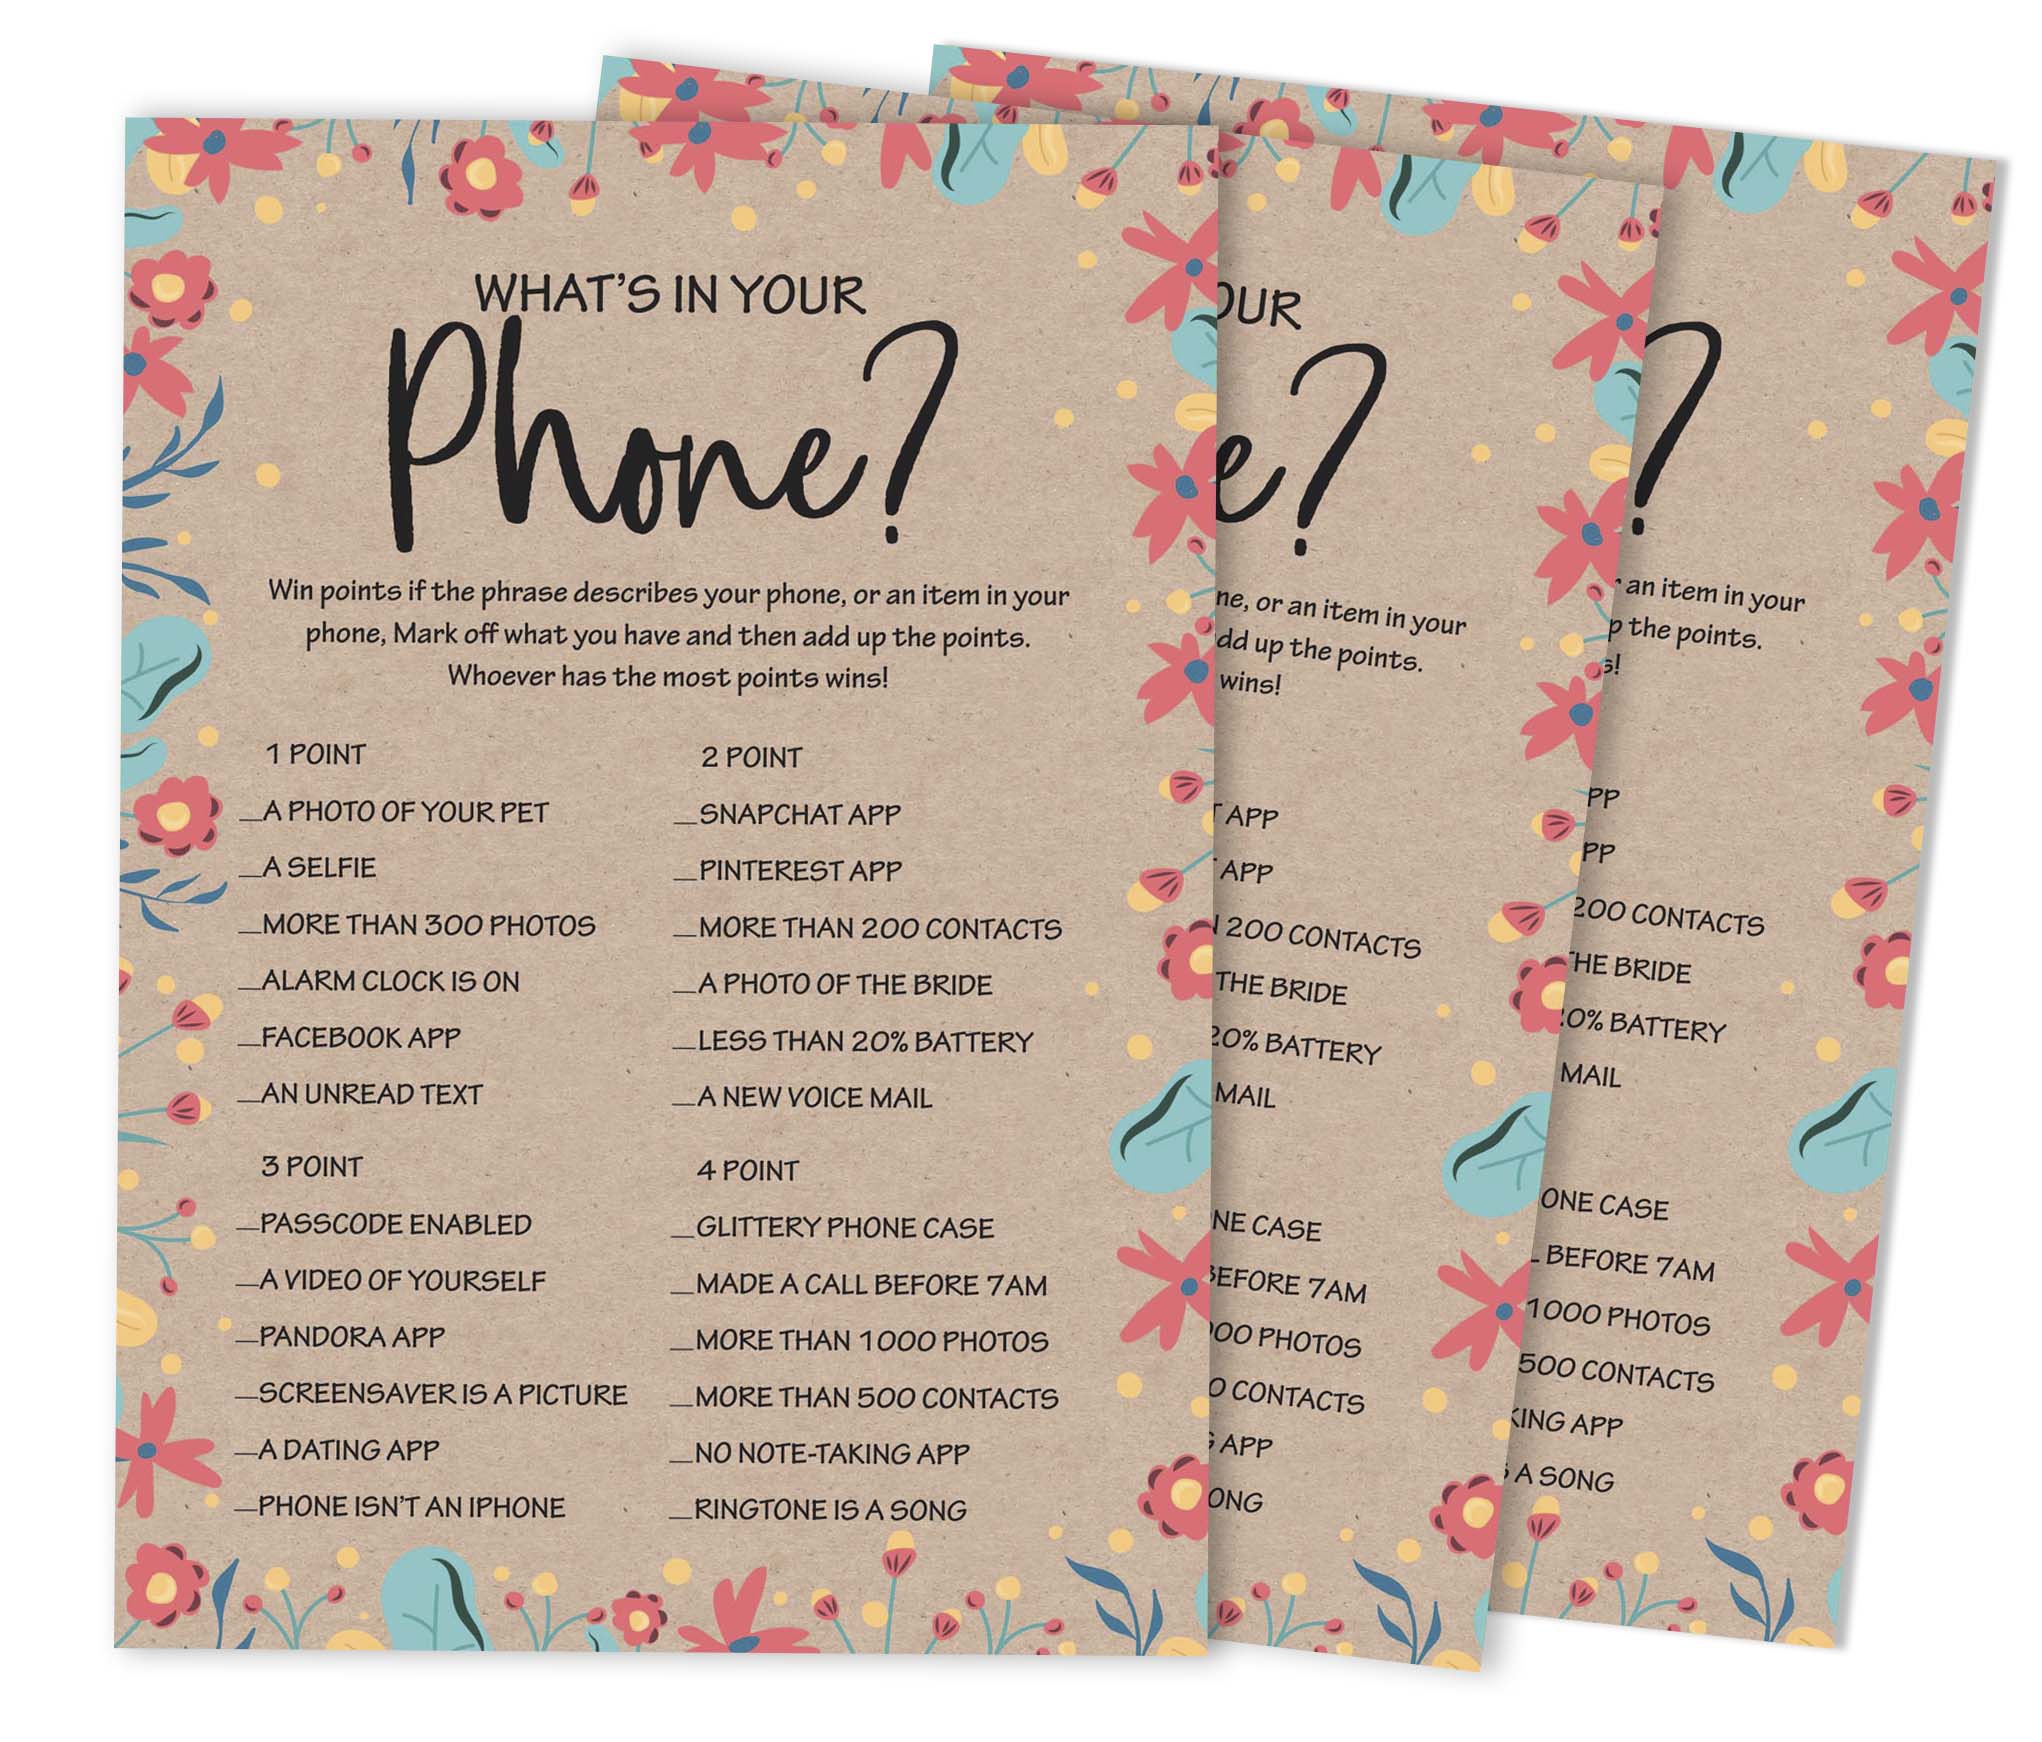 WHAT'S IN YOUR
Phone?
Win points if the phrase describes your phone, or an item in your
phone, Mark off what you have and then add up the points.
Whoever has the most points wins!
1 POINT
__A PHOTO OF YOUR PET
__A SELFIE
__MORE THAN 300 PHOTOS
__ALARM CLOCK IS ON
__FACEBOOK APP
__AN UNREAD TEXT
2 POINT
__SNAPCHAT APP
__PINTEREST APP
__MORE THAN 200 CONTACTS
__A PHOTO OF THE BRIDE
__LESS THAN 20% BATTERY
__A NEW VOICE MAIL
3 POINT
__PASSCODE ENABLED
__A VIDEO OF YOURSELF
__PANDORA APP
__SCREENSAVER IS A PICTURE
__A DATING APP
__PHONE ISN'T AN IPHONE
4 POINT
__GLITTERY PHONE CASE
__MADE A CALL BEFORE 7AM
__MORE THAN 1000 PHOTOS
__MORE THAN 500 CONTACTS
__NO NOTE-TAKING APP
__RINGTONE IS A SONG
OUR
e?
ne, or an item in your
add up the points.
wins!
T APP
T APP
N 200 CONTACTS
THE BRIDE
20% BATTERY
MAIL
NE CASE
BEFORE 7AM
000 PHOTOS
0 CONTACTS
G APP
ONG
?
r an item in your
p the points.
s!
PP
PP
200 CONTACTS
THE BRIDE
20% BATTERY
MAIL
ONE CASE
L BEFORE 7AM
1000 PHOTOS
500 CONTACTS
KING APP
S A SONG